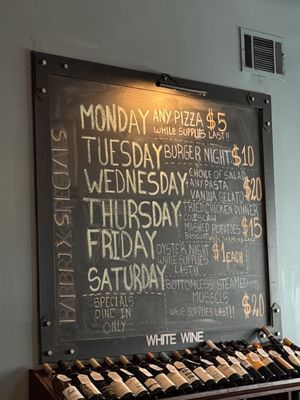 BARTLIX SPECIALS
MONDAY ANY PIZZA $5
WHILE SUPPLIES LAST!!
TUESDAY BURGER NIGHT $10
WEDNESDAY CHOICE OF SALAD
ANY PASTA $20
VANILLA GELATO
THURSDAY FRIED CHICKEN DINNER
COLESLAW
MASHED POTATOES $15
FRIDAY OYSTER NIGHT $1 EACH
WHILE SUPPLIES
LAST!!
SATURDAY BOTTOMLESS STEAMED
MUSSELS
WHILE SUPPLIES LAST!! $20
SPECIALS
DINE IN
ONLY
WHITE WINE